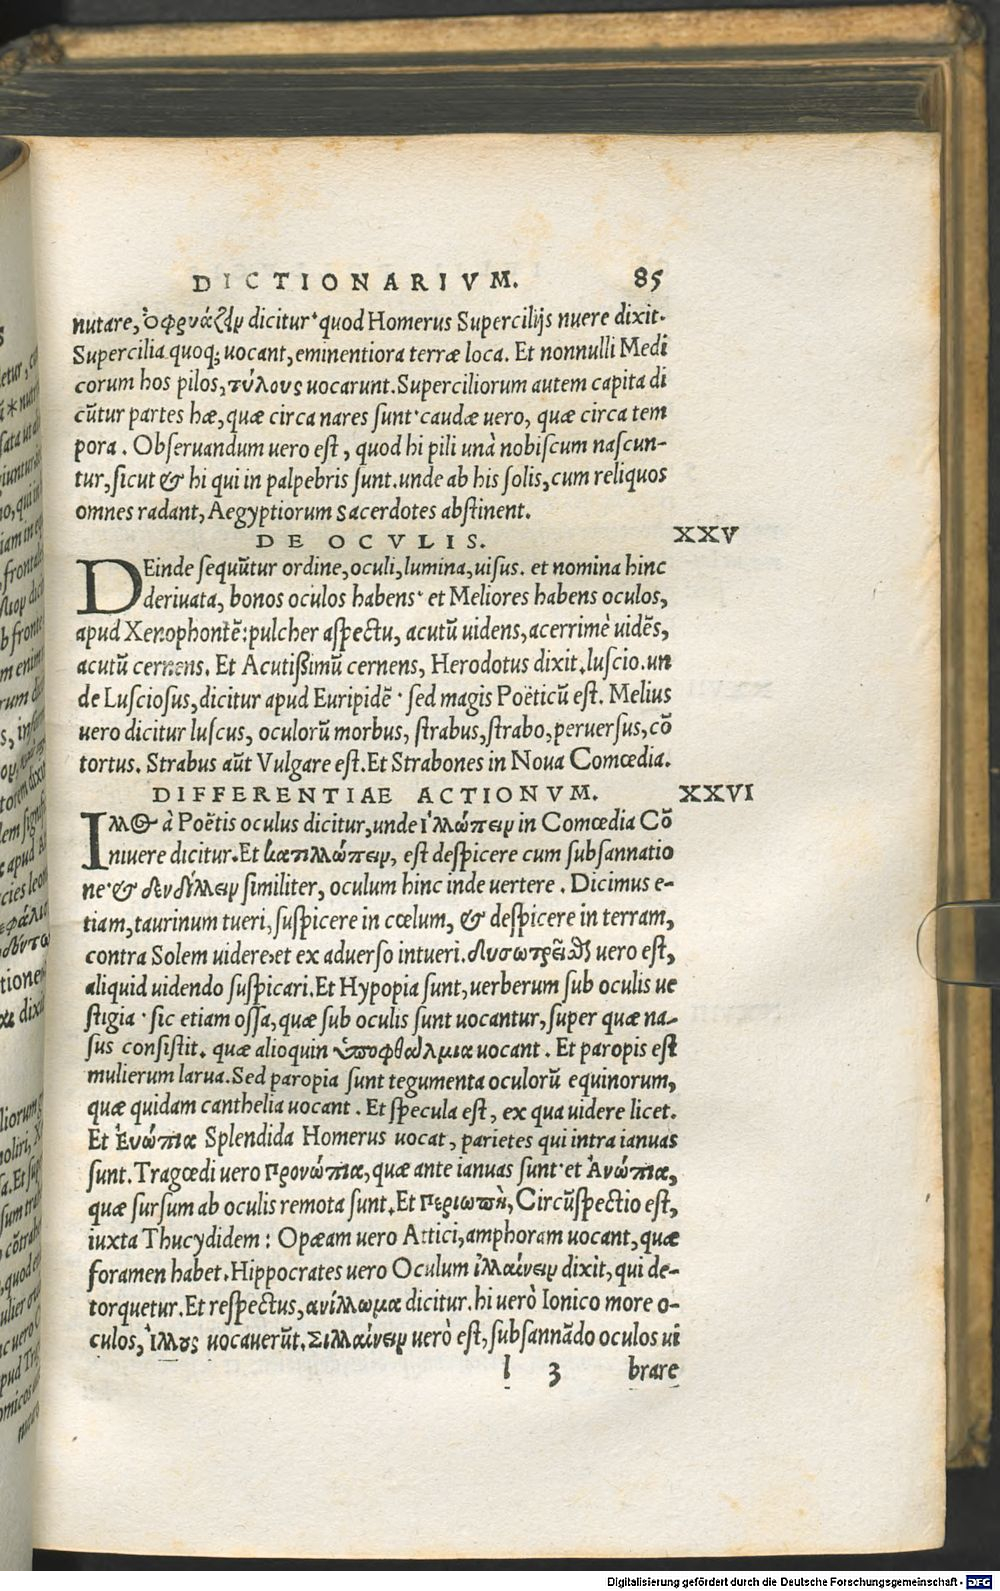 DICTIONARIVM. 85
nutare, ὀφρυάζειν dicitur· quod Homerus Supercilijs nuere dixit.
Supercilia quoq; uocant, eminentiora terræ loca. Et nonnulli Medi
corum hos pilos, τύλους uocarunt. Superciliorum autem capita di
cũtur partes hæ, quæ circa nares sunt· caudæ uero, quæ circa tem
pora. Obseruandum uero est, quod hi pili unà nobiscum nascun-
tur, sicut & hi qui in palpebris sunt. unde ab his solis, cum reliquos
omnes radant, Aegyptiorum sacerdotes abstinent.
DE OCVLIS. XXV
DEinde sequũtur ordine, oculi, lumina, uisus. et nomina hinc
deriuata, bonos oculos habens· et Meliores habens oculos,
apud Xenophontẽ: pulcher aspectu, acutũ uidens, acerrimè uidẽs,
acutũ cernens. Et Acutißimũ cernens, Herodotus dixit. luscio. un
de Lusciosus, dicitur apud Euripidẽ· sed magis Poëticũ est. Melius
uero dicitur luscus, oculorũ morbus, strabus, strabo, peruersus, cõ
tortus. Strabus aũt Vulgare est. Et Strabones in Noua Comœdia.
DIFFERENTIAE ACTIONVM. XXVI
Ἰλλος à Poëtis oculus dicitur, unde ἰλλώπειν in Comœdia Cõ
niuere dicitur. Et κατιλλώπειν, est despicere cum subsannatio
ne· & δενδύλλειν similiter, oculum hinc inde uertere. Dicimus e-
tiam, taurinum tueri, suspicere in cœlum, & despicere in terram,
contra Solem uidere. et ex aduerso intueri. uero est,
aliquid uidendo suspicari. Et Hypopia sunt, uerberum sub oculis ue
stigia· sic etiam ossa, quæ sub oculis sunt uocantur, super quæ na-
sus consistit. quæ alioquin ὑποφθαλμια uocant. Et paropis est
mulierum larua. Sed paropia sunt tegumenta oculorũ equinorum,
quæ quidam canthelia uocant. Et specula est, ex qua uidere licet.
Et Ἐνώπια Splendida Homerus uocat, parietes qui intra ianuas
sunt. Tragœdi uero Προνώπια, quæ ante ianuas sunt· et Ἀνώπια,
quæ sursum ab oculis remota sunt. Et Περιωπὴ, Circũspectio est,
iuxta Thucydidem: Opæam uero Attici, amphoram uocant, quæ
foramen habet. Hippocrates uero Oculum ἰλλαίνειν dixit, qui de-
torquetur. Et respectus, ανίλλωμα dicitur. hi uerò Ionico more o-
culos, ἴλλους uocauerũt. Σιλλαίνειν uerò est, subsannãdo oculos ui
l 3 brare
Digitalisierung gefördert durch die Deutsche Forschungsgemeinschaft - DFG